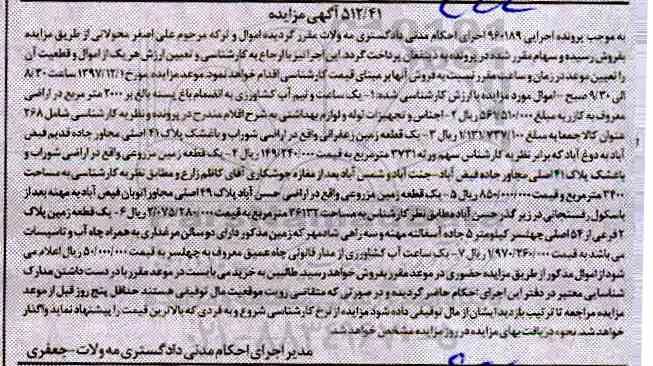 ۵۱۲/۴۱ آگهی مزایده
به موجب پرونده اجرایی ۹۶۰۱۸۹ اجرای احکام مدنی دادگستری مه ولات مقرر گردیده اموال و ترکه مرحوم علی اصغر محولاتی از طریق مزایده
بفروش رسیده و سهام مقرر شده در پرونده به ذینفعان پرداخت گردد. این اجرا نیز با ارجاع به کارشناسی و تعیین ارزش هر یک از اموال و قطعیت آن
را تعیین موعد در زمان و ساعت مقرر نسبت به فروش آنها بر مبنای قیمت کارشناسی اقدام خواهد نمود. موعد مزایده مورخ ۱۳۹۷/۱۲/۱ ساعت ۸/۳۰
الی ۹/۳۰ صبح - اموال مورد مزایده با ارزش کارشناسی شده: ۱- یک ساعت و نیم آب کشاورزی به انضمام باغ پسته بالغ بر ۲۰۰۰ متر مربع در اراضی
معروف به کاریز به مبلغ ۵۶۷/۵۱۰/۰۰۰ ریال ۲- اجناس و تجهیزات لوله و لوازم بهداشتی به شرح اقلام مندرج در پرونده و نظریه کارشناسی شامل ۲۶۸
عنوان کالا جمعا به مبلغ ۱/۱۳۱/۷۳۷/۱۰۰ ریال ۳- یک قطعه زمین زعفرانی واقع در اراضی شوراب و باغشک پلاک ۴۱ اصلی مجاور جاده قدیم فیض
آباد به دوغ آباد که برابر نظریه کارشناس سهم ورثه ۳۷۳۱ مترمربع به قیمت ۱۴۹/۲۴۰/۰۰۰ ریال ۴- یک قطعه زمین مزروعی واقع در اراضی شوراب و
باغشک پلاک ۴۱ اصلی مجاور جاده فیض آباد - جنت آباد و شمس آباد بعد از مغازه جوشکاری آقای کاظم زارع و مطابق نظریه کارشناسی به مساحت
۳۴۰۰ مترمربع و قیمت ۸۵۰/۰۰۰/۰۰۰ ریال ۵- یک قطعه زمین مزروعی واقع در اراضی حسن آباد پلاک ۴۹ اصلی مجاور اتوبان فیض آباد به مهنه بعد از
باسکول رفسنجانی در زیر گذر حسن آباد مطابق نظر کارشناس به مساحت ۳۶۱۳۲ مترمربع به قیمت ۲/۰۷۵/۲۸۰/۰۰۰ ریال ۶- یک قطعه زمین پلاک
۲ فرعی از ۵۴ اصلی چهلسر کیلومتر ۵ جاده آسفالته مهنه و سه راهی شادمهر که زمین مذکور دارای دو سالن مرغداری به همراه چاه آب و تاسیسات
می باشد به قیمت ۱/۹۷۰/۲۶۰/۰۰۰ ریال ۷- یک ساعت آب کشاورزی از مدار قانونی چاه عمیق معروف به چهلسر به قیمت ۵۰/۰۰۰/۰۰۰ ریال اعلام می
شود از اموال مذکور از طریق مزایده حضوری در موعد مقرر بفروش خواهد رسید. طالبین به خرید می بایست در موعد مقرر با در دست داشتن مدارک
شناسایی معتبر در دفتر این اجرای احکام حاضر گردیده و در صورتی که متقاضی رویت موقعیت مال توقیفی هستند حداقل پنج روز قبل از موعد
مزایده مراجعه تا ترکیب بازدید ایشان از مال توقیفی داده شود مزایده از نرخ کارشناسی شروع و به فردی که بالاترین قیمت را پیشنهاد نماید واگذار
خواهد شد. نحوه دریافت بهای مزایده در روز مزایده مشخص خواهد شد.
مدیر اجرای احکام مدنی دادگستری مه ولات - جعفری